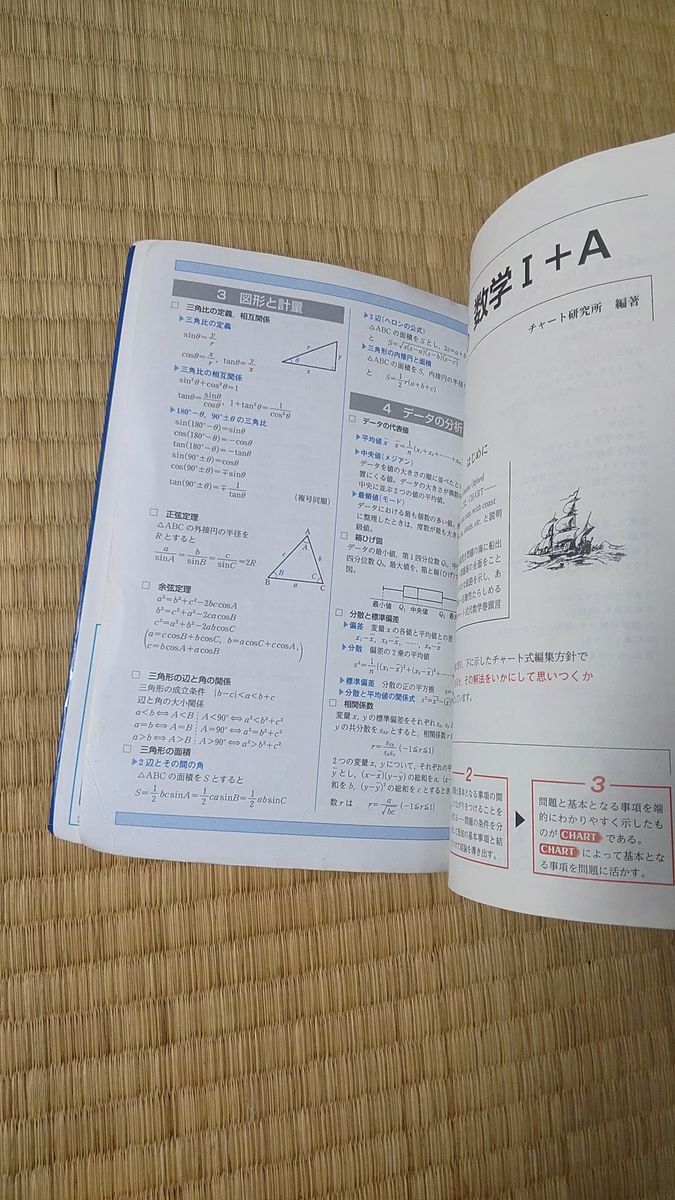 3 図形と計量
□ 三角比の定義，相互関係
▶三角比の定義
sinθ=y/r
cosθ=x/r, tanθ=y/x
▶三角比の相互関係
sin²θ+cos²θ=1
tanθ=sinθ/cosθ, 1+tan²θ=1/cos²θ
▶180°−θ, 90°±θ の三角比
sin(180°−θ)=sinθ
cos(180°−θ)=−cosθ
tan(180°−θ)=−tanθ
sin(90°±θ)=cosθ
cos(90°±θ)=∓sinθ
tan(90°±θ)=∓1/tanθ
(複号同順)
r
y
θ
x
□ 正弦定理
△ABC の外接円の半径を
R とすると
a/sinA=b/sinB=c/sinC=2R
A
A
c
b
B
B
C
a
C
□ 余弦定理
a²=b²+c²−2bccosA
b²=c²+a²−2cacosB
c²=a²+b²−2abcosC
(a=ccosB+bcosC, b=acosC+ccosA,
c=bcosA+acosB)
□ 三角形の辺と角の関係
三角形の成立条件 |b−c|<a<b+c
辺と角の大小関係
a<b⟺A<B A<90°⟺a²<b²+c²
a=b⟺A=B A=90°⟺a²=b²+c²
a>b⟺A>B A>90°⟺a²>b²+c²
□ 三角形の面積
▶2 辺とその間の角
△ABC の面積を S とすると
S=1/2 bcsinA=1/2 casinB=1/2 absinC
▶3 辺(ヘロンの公式)
△ABC の面積を S とし, 2s=a+b
と S=√s(s−a)(s−b)(s−c)
▶三角形の内接円と面積
△ABC の面積を S, 内接円の半径
と S=1/2 r(a+b+c)
4 データの分析
□ データの代表値
▶平均値 x̄ x̄=1/n(x₁+x₂+……+x
▶中央値(メジアン)
データを値の大きさの順に並べたと
置にくる値。データの大きさが偶数
中央に並ぶ 2 つの値の平均値。
▶最頻値(モード)
データにおける最も個数の多い値。
に整理したときは，度数が最も大き
級値。
□ 箱ひげ図
データの最小値，第 1 四分位数 Q₁, 中
四分位数 Q₃, 最大値を，箱と線(ひげ)
図。
最小値 Q₁ 中央値 Q₃ 最大
□ 分散と標準偏差
▶偏差 変量 x の各値と平均値との差
x₁−x̄, x₂−x̄, ……, xₙ−x̄
▶分散 偏差の 2 乗の平均値
s²=1/n{(x₁−x̄)²+(x₂−x̄)²+…
▶標準偏差 分散の正の平方根
▶分散と平均値の関係式
□ 相関係数
変量 x, y の標準偏差をそれぞれ
y の共分散を sxy とすると，相関係数 r
r=sxy/sxsy (−1≦r≦1)
2 つの変量 x, y について，それぞれの平
ȳ とし, (x−x̄)(y−ȳ) の総和を a, (x−
和を b, (y−ȳ)² の総和を c とするとき
数 r は r=a/√bc (−1≦r≦1)
数学Ⅰ+A
チャート研究所 編著
はじめに
CHART
with coast
etc. と説明
問題の海に船出
の全面をこと
を示し，あ
らしめる
式代数学巻頭言
下に示したチャート式編集方針で
その解法をいかにして思いつくか
ています。
2
基本となる事項の間
つながりをつけることを
問題の条件を分
の基本事項と結
結論を導き出す。
▶
3
問題と基本となる事項を端
的にわかりやすく示したも
のが CHART である。
CHART によって基本とな
る事項を問題に活かす。